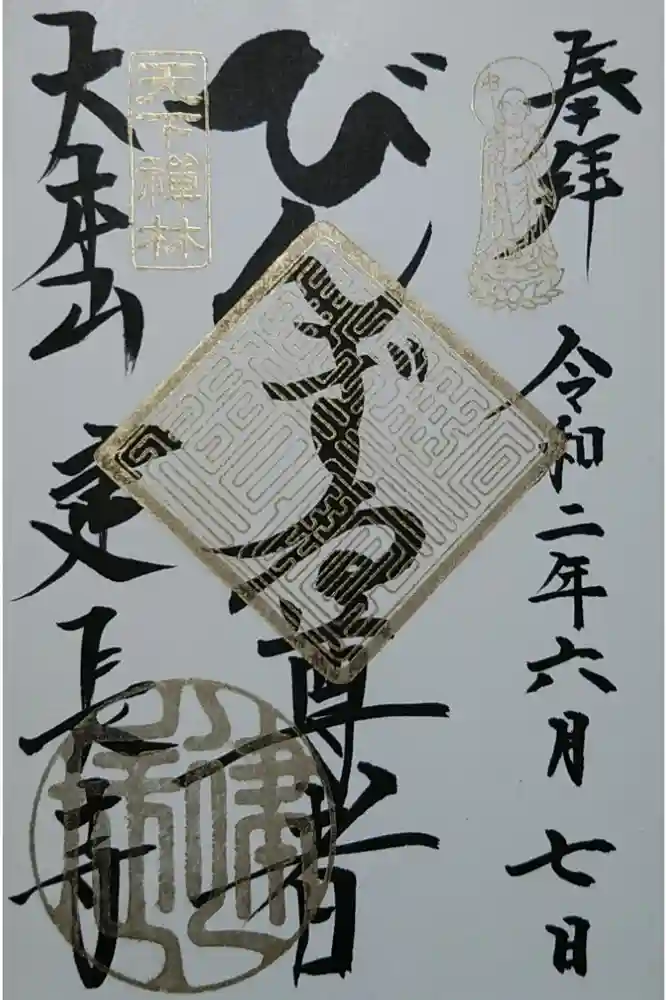 奉拝
令和二年六月七日
びんずる尊者
天下禪林
大本山 建長寺